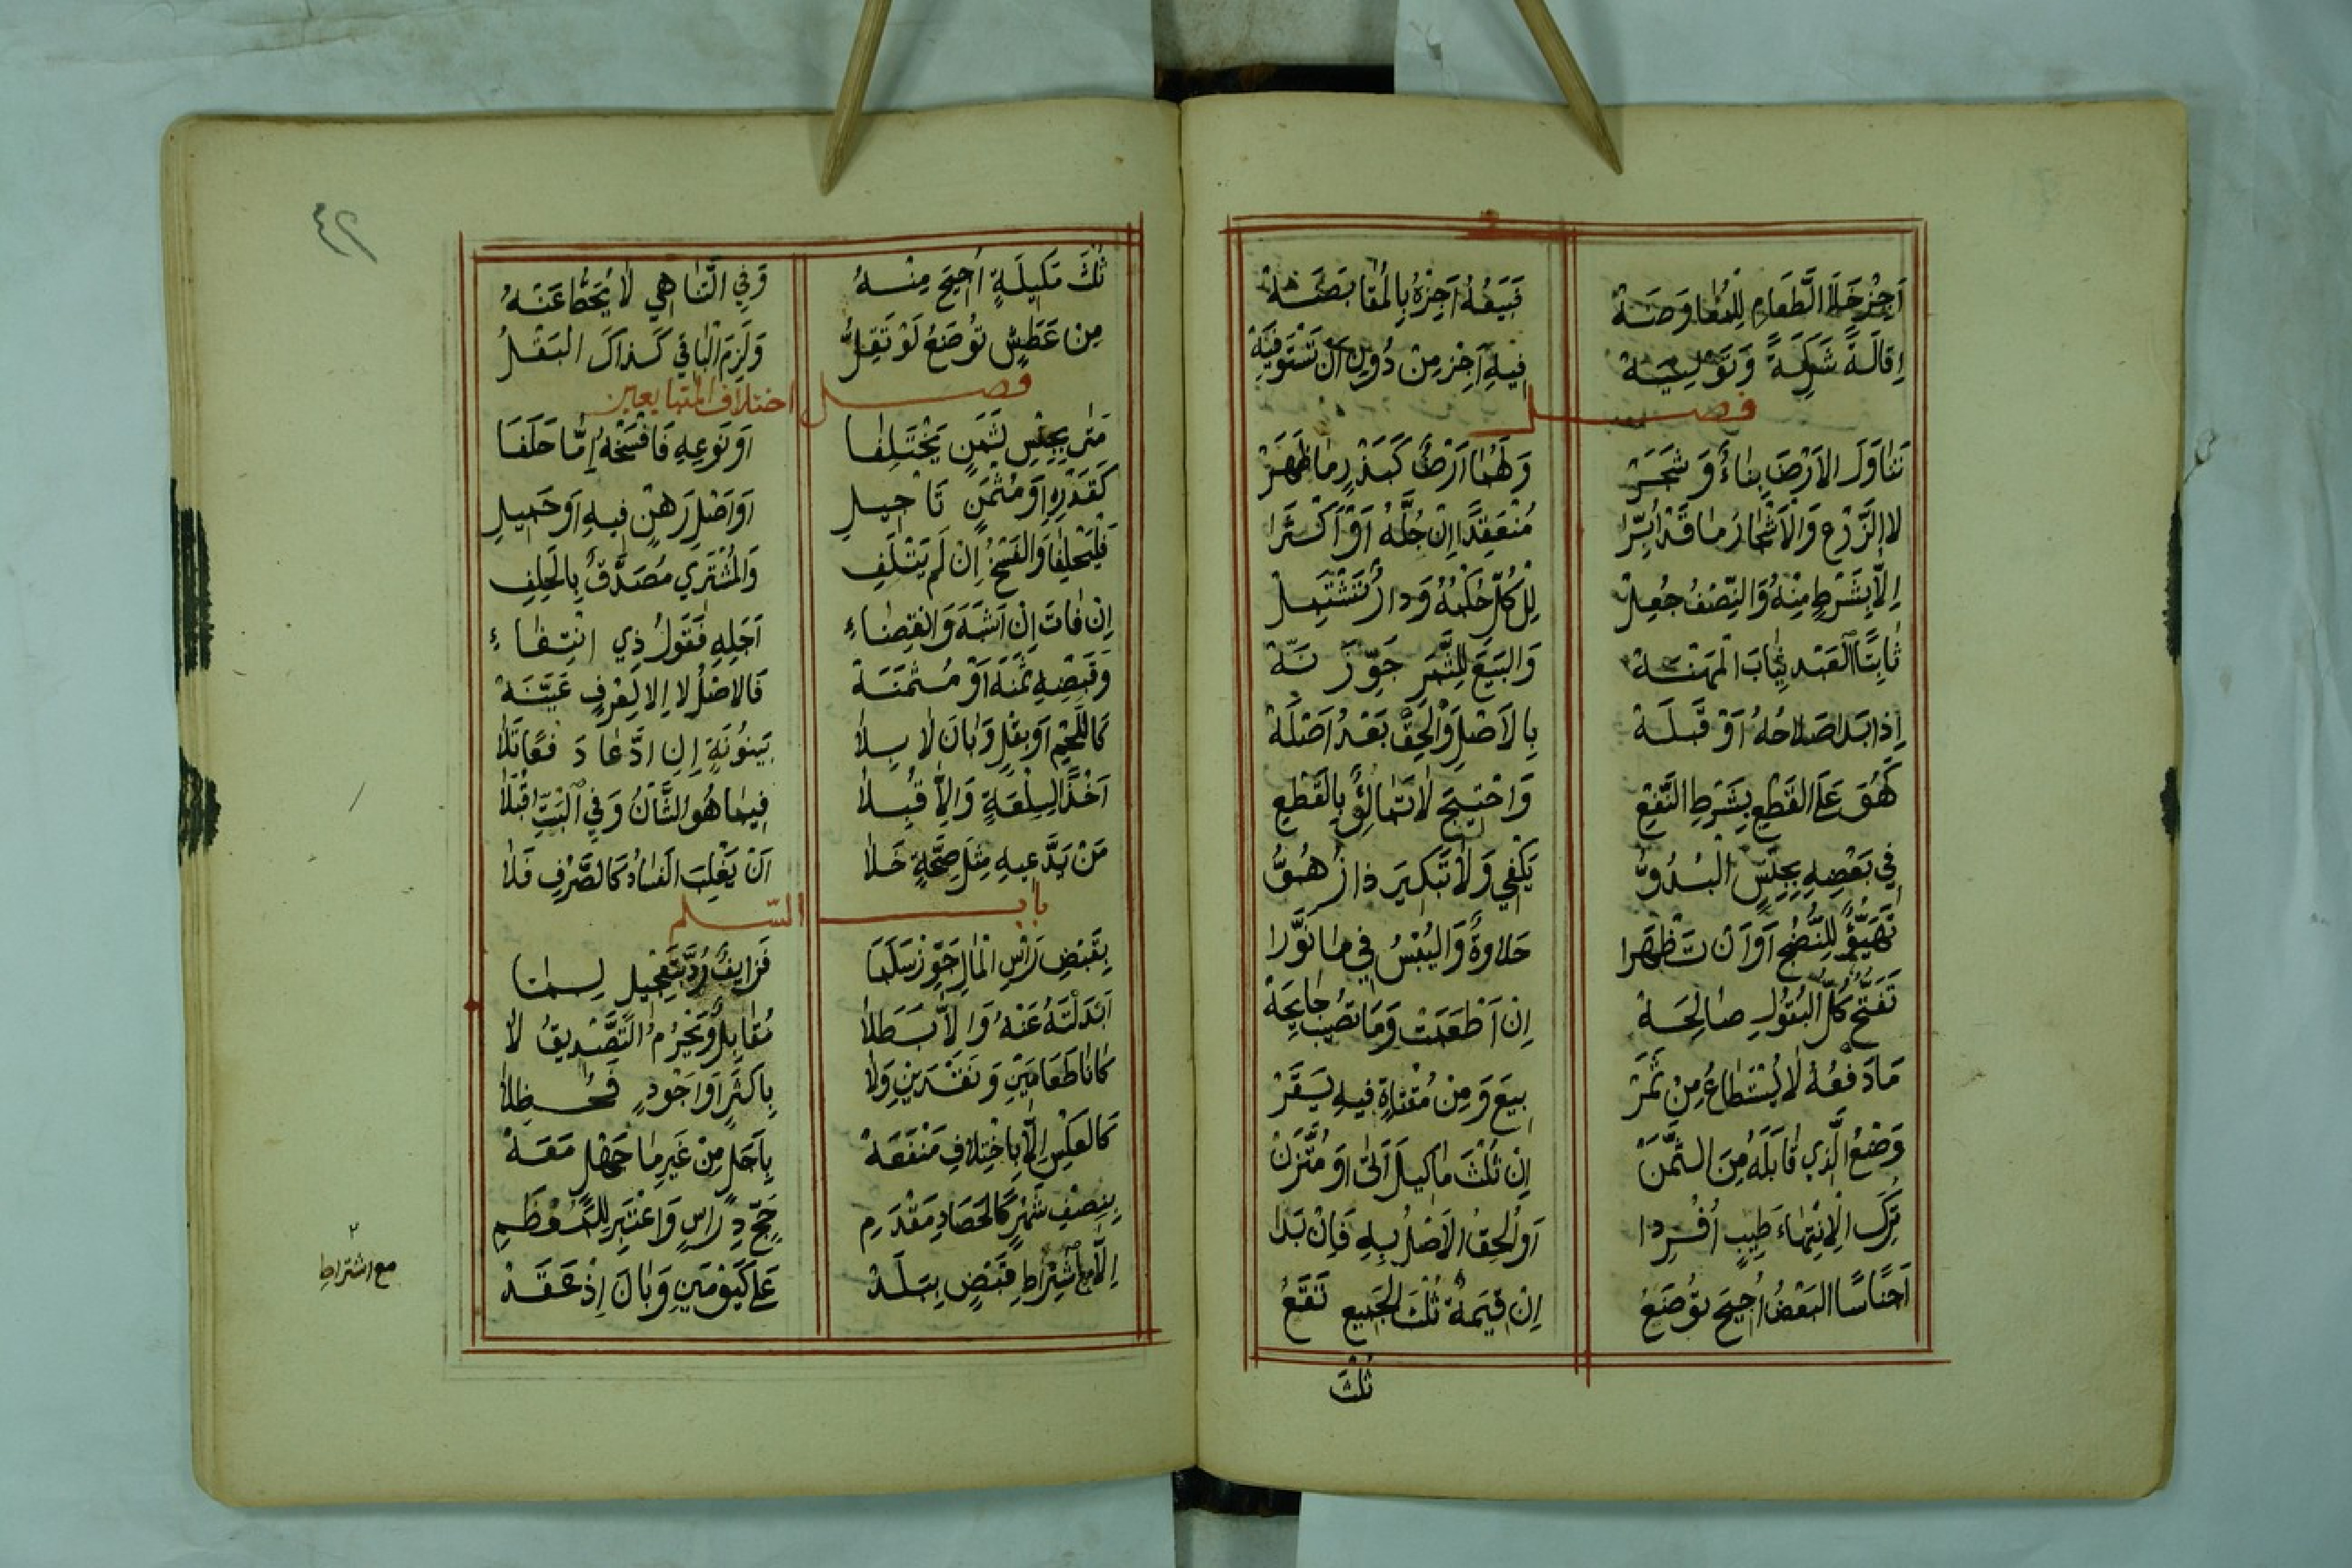 اَجِزْ خَلَا الطَّعَامِ لِلْمُعَاوَضَهْ فَبَيْعُهُ اَجِزْهُ بِالْمُقَابَضَهْ
اِقَالَةً شَرِكَةً وَتَوْلِيَهْ فِيهِ اَجِزْ مِنْ دُونِ اَنْ تَسْتَوْفِيَهْ
فصل
تَنَاوَلَ الاَرْضَ بِنَاءٌ وَشَجَرْ وَلَهُمَا اَرْضٌ كَبَذْرٍ مَا ظَهَرْ
لا الزَّرْعَ وَالْاَثْمَارُ مَا قَدْ اُبِّرَا مُنْعَقِدًا اِنْ جُلَّهُ اَوْ اَكْثَرَا
اِلَّا بِشَرْطٍ مِنْهُ وَالنِّصْفُ جُعِلْ لِلْكُلِّ حُكْمُهُ وَدارٌ تَشْتَمِلْ
ثَابِتًا الْعَبْد ثِيَابَ الْمَهْنَهْ وَالبَيْعَ لِلثَّمَرِ جَوِّزَنَّهْ
اِذَا بَدَا صَلَاحُهُ اَوْ قَبْلَهْ بِالاَصْلِ وَالْحِقْ بَعْدُ اَصْلَهْ
كَهُوَ عَلَى القَطْعِ بِشَرْطِ النَّفْعِ وَاحْتِيجَ لَا تَمَالُئٌ بِالقَطْعِ
فِي بَعْضِهِ بِجِنْسٍ الْبُدُوُّ يَكْفِي وَلَا تَبْكِيرَ ذَا زُهُوُّ
تَهَيُّؤٌ لِلنُّضْجِ اَوْ اَنْ تَظْهَرَا حَلَاوةٌ وَاليُبْسُ فِي مَا نَوَّرَا
تَفَتُّحٌ كُلُّ البُقُولِ صَالِحَهْ اِنْ اَطْعَمَتْ وَمَا تُصِيبُ جَايِحَهْ
مَا دَفْعُهُ لَا يُسْتَطَاعُ مِنْ ثَمَرْ بِيعَ وَمِنْ مُقْثَاةٍ فِيهِ يَسْتَقَرْ
وَضْعُ الَّذِي قَابَلَهُ مِنَ الثَّمَنْ اِنْ ثُلْثَ مَا كِيلَ اَتَى اَوْ مُتَّزَنْ
تُرِكَ الْاِنْتِهَاءَ طِيبٍ اُفْرِدا اَوْ اُلْحِقُ الاَصْلُ بِهِ فَاِنْ بَدَا
اَجْنَاسًا البَعْضُ اُجِيحَ تُوْضَعُ اِنْ قِيمَةٌ ثُلْثَ الجَمِيعِ تَقَعُ
ثُلْثَ
٤٢
ثُلْثَ مَكِيلَةٍ اُجِيحَ مِنْهُ وَفِي التَّنَاهِي لَا يُحَطُّ عَنْهُ
مِنْ عَطَشٍ تُوضَعُ لَوْ تَقِلُّ وَلَزِمَ الْبَاقِي كَذَاكَ البَقْلُ
فصل اختلاف المتبايعين
مَتى بِجِنْسِ ثَمَنٍ يَخْتَلِفَا اَوْ نَوْعِهِ فَافْسَخْهُ اِمَّا حَلَفَا
كَقَدْرِهِ اَوْ مُثْمَنٍ تَاْجِيلِ اَوْ اَصْلِ رَهْنٍ فِيهِ اَوْ حَمِيلِ
فَلْيَحْلِفَا وَالفَسْخُ اِنْ لَمْ يَتْلَفِ وَالمُشْتَرِي مُصَدَّقٌ بِالحَلِفِ
اِنْ فَاتَ اِنْ اَشْبَهَ وَانْقِضَاءِ اَجَلِهِ فَقَوْلُ ذِي انْتِفَاءِ
وَقَبْضِهِ ثَمَنَهُ اَوْ مُثْمَنَهْ فَالاَصْلُ لا اِلا لِعُرْفٍ عَيَّنَهْ
كَاللَّحْمِ اَوْ بَقْلٍ وَبَانَ لا بِلَا بَيْنُونَةٍ اِنِ ادَّعَا دَفْعًا تَلَا
اَخْذًا لِسِلْعَةٍ وَاِلَّا قُبِلَا فِيمَا هُوَ الشَّاْنُ وَفِي الْبَتِّ اقْبَلَا
مَنْ يَدَّعِيهِ مِثْلَ صِحَّةٍ خَلَا اَنْ يَغْلِبَ الْفَسَادُ كَالصَّرْفِ فَلَا
باب السّلم
بِقَبْضِ رَاْسِ الْمَالِ جَوِّزْ سَلَمَا فَزَايِفٌ رُدَّ بِتَعْجِيلٍ لِمَا
اَبْدَلْتَهُ عَنْهُ وَاِلَّا بَطَلَا مُقَابِلٌ وَيَحْرُمُ التَّصْدِيقُ لَا
كَانَا طَعَامَيْنِ وَنَقْدَيْنِ وَلَا بِاَكْثَرَ اَوْ اَجْوَدٍ فَحُظِلَا
كَالعَكْسِ اِلَّا بِاخْتِلَافِ مَنْفَعَهْ بِاَجَلٍ مِنْ غَيْرِ مَا جَهْلٍ مَعَهْ
بِنِصْفِ شَهْرٍ كَالحَصَادِ مَقْدَمِ حَجٍّ دِرَاسٍ وَاعْتَبِرْ لِلْمُعْظَمِ
اِلَّا مع اشْتِرَاطِ قَبْضٍ بِبَلَدْ عَلَى كَيَوْمَيْنِ وَبَانَ اِذْ عَقَدْ
٢
مع اشتراطِ